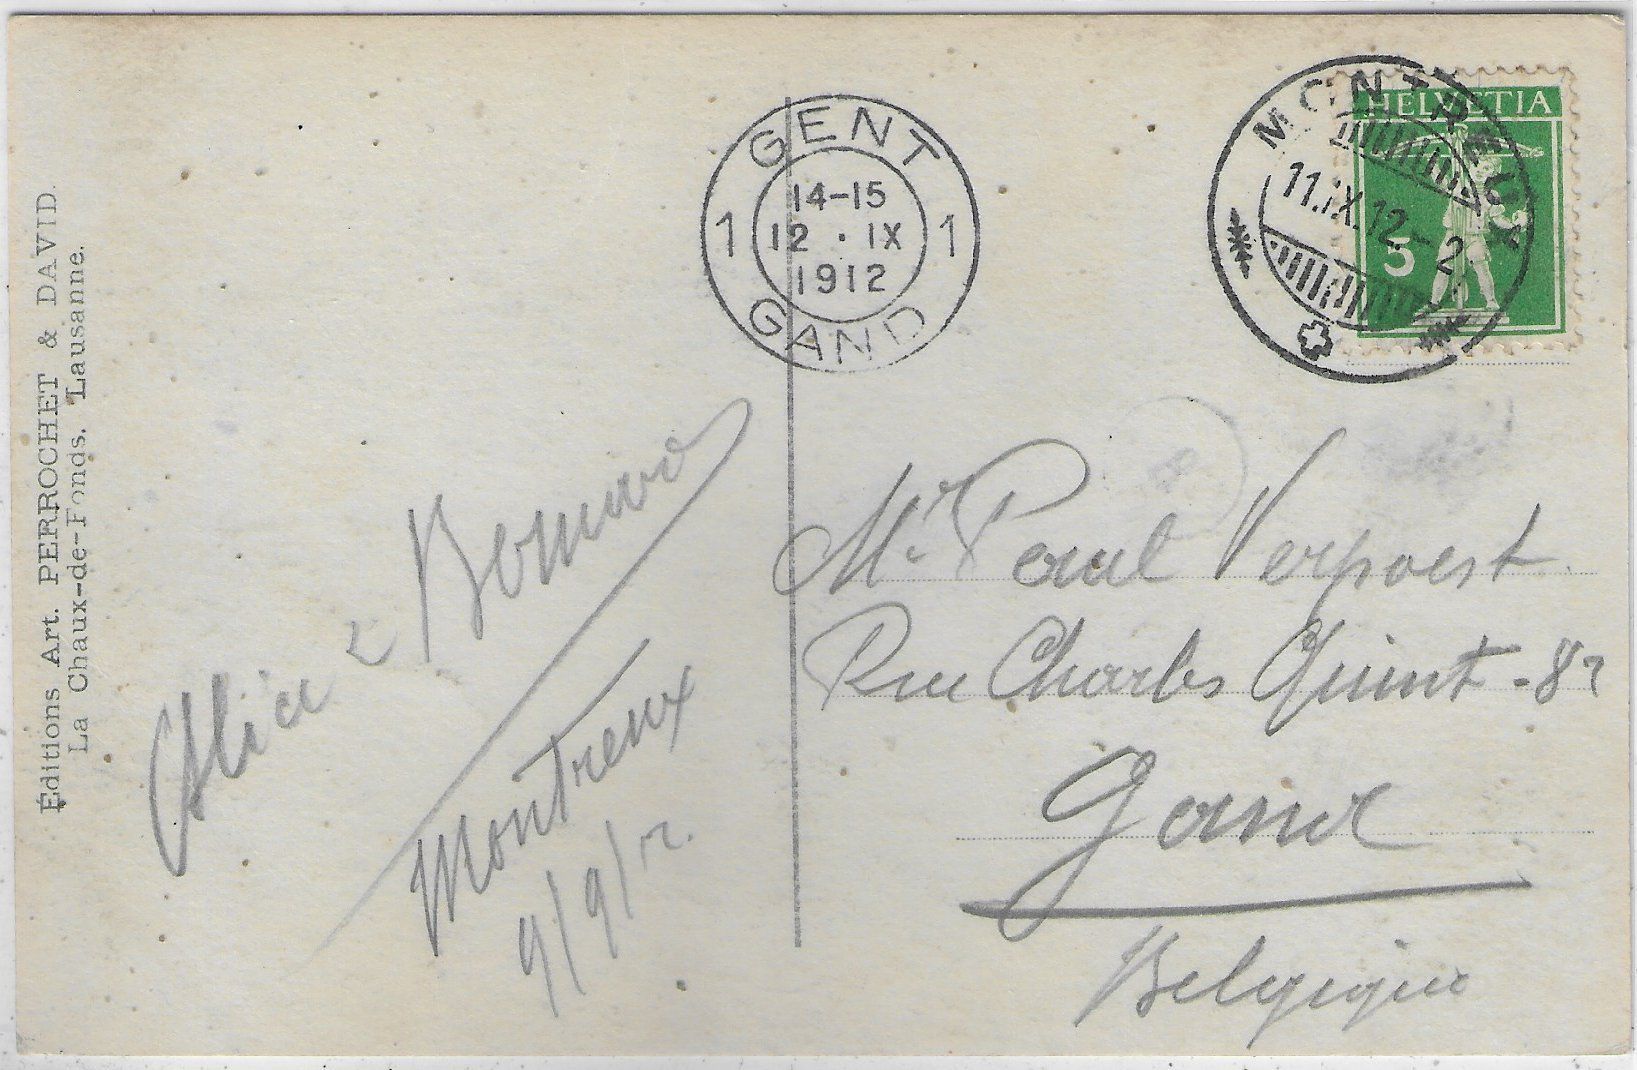 Éditions Art. PERROCHET & DAVID.
La Chaux-de-Fonds. Lausanne.
GENT
14-15
1 12 . IX 1
1912
GAND
MONTREUX
11.IX.12.- 2
HELVETIA
5
Alice &
Montreux
9/9/12.
Mr. Paul Verpoest
Rue Charles Quint - 87
Gand
Belgique